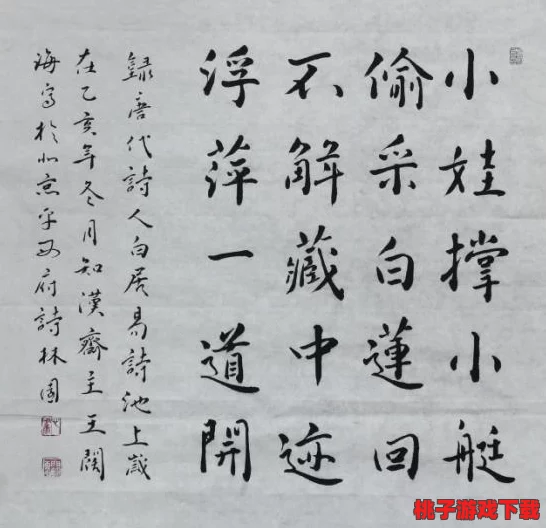 小娃撑小艇
偷采白蓮回
不解藏中迹
浮萍一道開
録唐代詩人白居易詩池上歲
在乙亥年冬月知漢齋主王
海寫於北京平西府詩林園
桃子游戏下载